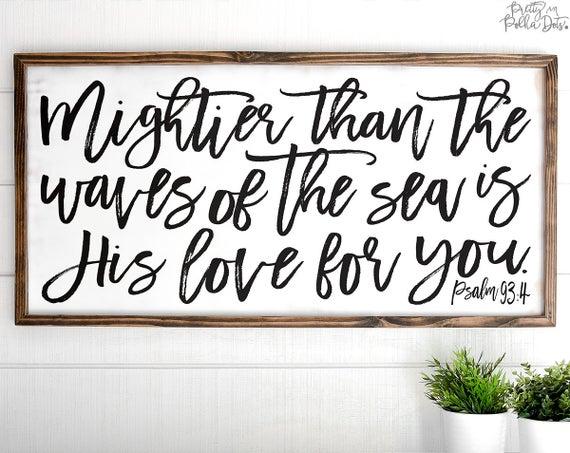 Pretty in
Polka Dots.
Mightier than the
waves of the sea is
His love for you.
Psalm 93:4